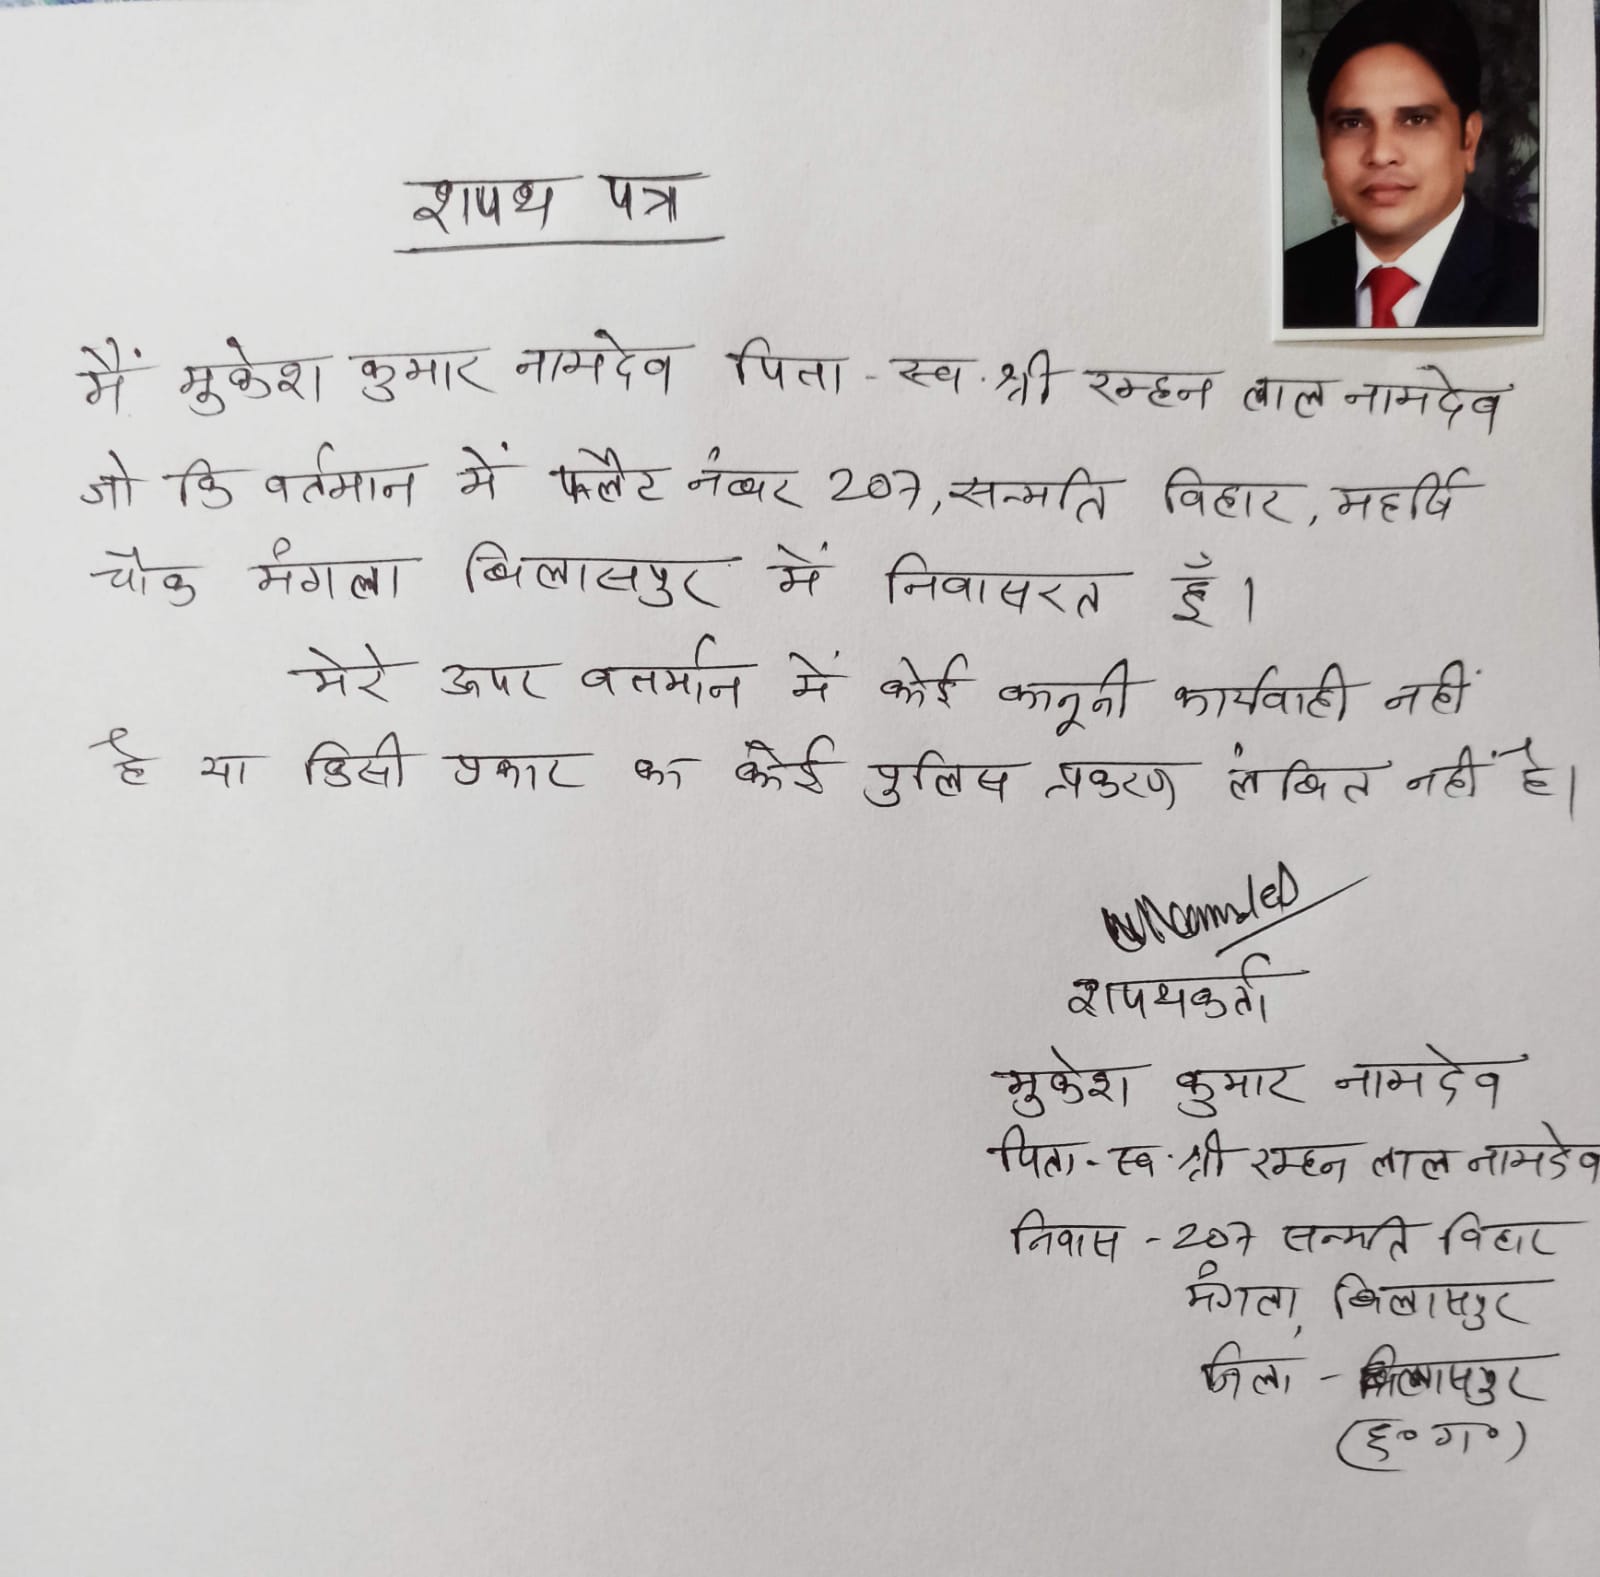 शपथ पत्र
मैं मुकेश कुमार नामदेव पिता - स्व. श्री रम्हन लाल नामदेव
जो कि वर्तमान में फ्लैट नंबर 207, सन्मति विहार, महर्षि
चौक मंगला बिलासपुर में निवासरत हूँ।
मेरे ऊपर वतर्मान में कोई कानूनी कार्यवाही नहीं
है या किसी प्रकार का कोई पुलिस प्रकरण लंबित नहीं है।
शपथकर्ता
मुकेश कुमार नामदेव
पिता - स्व. श्री रम्हन लाल नामदेव
निवास - 207 सन्मति विहार
मंगला, बिलासपुर
जिला - बिलासपुर
(छ० ग०)